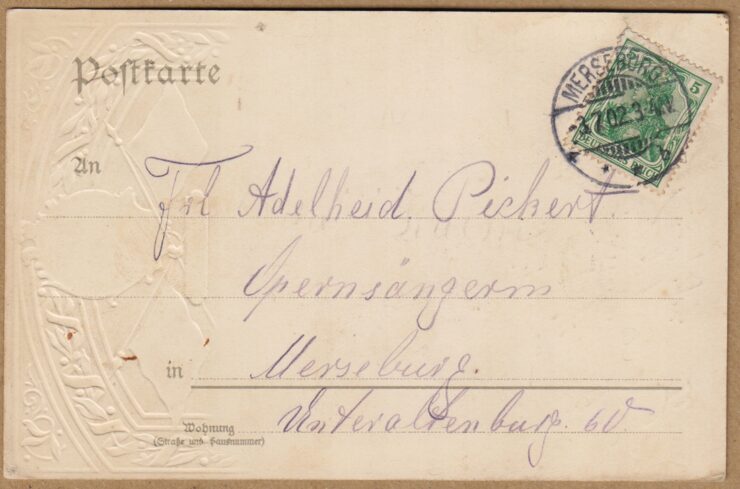 Postkarte
MERSEBURG
3.7.02.3-4N.
5
An
Frl Adelheid Pickert.
Opernsängerin
in Merseburg.
Unteraltenburg. 60
Wohnung
(Straße und Hausnummer)